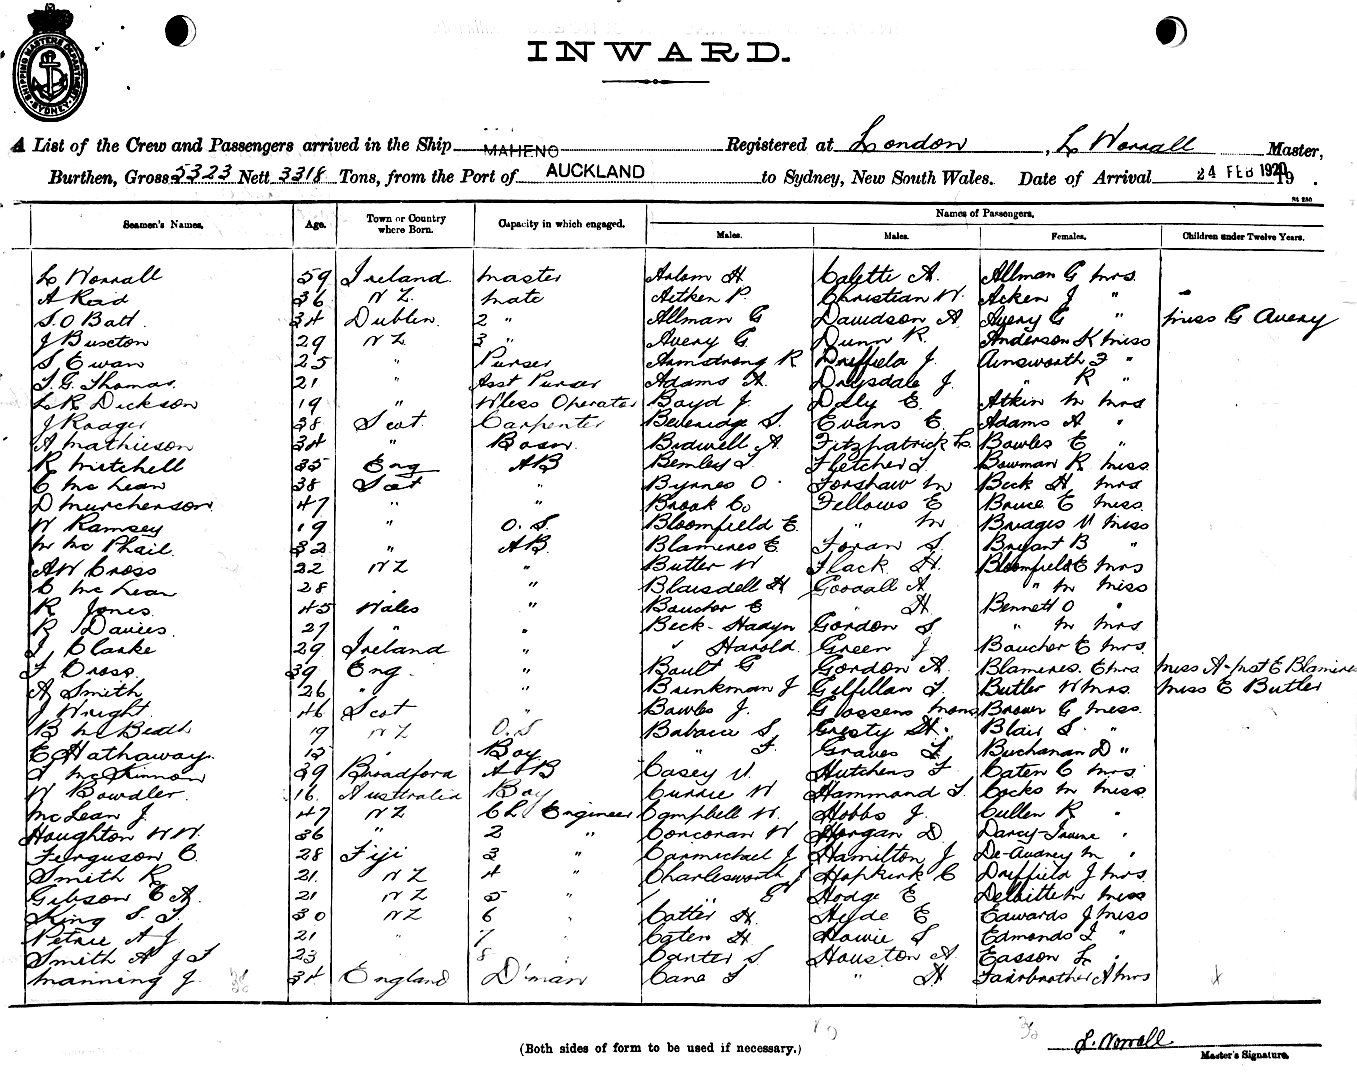 SHIPPING MASTERS DEPARTMENT SYDNEY
INWARD.
A List of the Crew and Passengers arrived in the Ship MAHENO Registered at London, L Worrall Master,
Burthen, Gross 5323 Nett 3318 Tons, from the Port of AUCKLAND to Sydney, New South Wales. Date of Arrival 24 FEB 1920
Names of Passengers.
Seamen's Names. Age. Town or Country where Born. Capacity in which engaged. Males. Males. Females. Children under Twelve Years.
L Worrall 59 Ireland Master Arlom H Calette A. Allman G Mrs
A Read 36 NZ. Mate Aitken P. Christian W. Acken J "
S. O Batt 34 Dublin 2 " Allman G Davidson A Avery G " Miss G Avery
J Buxton 29 NZ 3 " Avery G Dunn R. Anderson K Miss
S Ewan 25 " Purser Armstrong R Driffield J. Ainsworth F "
T. G. Thomas 21 " Asst Purser Adams A. Drysdale J. " R "
L R Dickson 19 " W'less Operator Boyd J. Daly E. Atkin M Mrs
J Rodger 38 Scot Carpenter Beveridge S. Evans E. Adams A "
A Mathieson 34 " Bosn. Bidwell A. Fitzpatrick L. Bowles E "
R Mitchell 35 Eng AB Bemley T. Fletcher T. Bowman R Miss
C McLean 38 Scot " Byrnes O. Forshaw M Beck H Mrs
D Murcherson 47 " " Brook Co Fellows E Bruce E Miss.
W Ramsey 19 " O. S. Bloomfield E. " M Bridges V Miss
M McPhail. 32 " AB. Blamires E. Foran S. Bryant B "
A W Cross 22 NZ " Butler W Flack H. Bloomfield E Mrs
C McLean 28 " Blaisdell H Goodall A " M Miss
R Jones. 45 Wales " Boucher E " H Bennett O "
R Davies. 27 " " Beck-Hadyn Gordon S " M Mrs
J, Clarke 29 Ireland " " Harold. Green J Boucher E Mrs.
F Cross. 39 Eng. " Boult G Gordon A. Blamires. E Mrs Miss A - Inft E Blamires
A Smith 26 " " Brinkman J Gilfillan T. Butler W Mrs. Miss E Butler
J Wright 46 Scot " Bowles J. Goossens Mons Brown G Miss.
B McBeath 19 NZ O.S Babaice S Gresty H. Blair S. "
E Hathaway. 15 " Boy " T. Graves T. Buchanan D "
McKinnon 39 Bradford AB Casey V. Hutchens T Caten C Mrs
W Bowdler. 16. Australia Boy Currie W Hammond T. Cocks M Miss
McLean J. 47 NZ Ch. Engineer Campbell W. Hobbs J. Cullen R "
Houghton W W. 36 " 2 " Corcoran W Horgan D. Darcy-Irvine "
Ferguson C. 28 Fiji 3 " Carmichael J Hamilton J De-Audney M "
Smith R. 21. NZ 4 " Charlesworth J Hopkirk C Driffield J Mrs.
Gibson E A. 21 NZ 5 " " E Hodge E Deloitte M Miss
King S. T. 30 NZ 6 " Catter H. Hyde E Edwards J Miss
Petrie A J 21 " 7 " Caten H Howie S Edmonds I "
Smith A J T 23 8 " Canter S. Houston A. Easson L. "
Manning J. 34 England D'man Cane T " H Fairbrother A Mrs
(Both sides of form to be used if necessary.)
L. Worrall
Master's Signature.